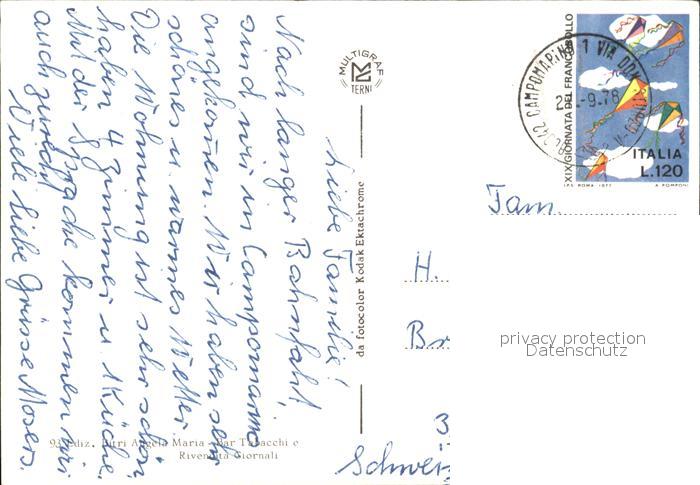 Liebe Familie!
Nach langer Bahnfahrt
sind wir in Campomarino
angekommen. Wir haben sehr
schönes u. warmes Wetter.
Die Wohnung ist sehr schön
haben 4 Zimmer u. 1 Küche.
Mit der Sprache kommen wir
auch zurecht.
Viele liebe Grüsse Mosers.
MULTIGRAF
TERNI
da fotocolor Kodak Ektachrome
93 Ediz. Pitri Angela Maria - Bar Tabacchi e
Rivendita Giornali
XIX GIORNATA DEL FRANCOBOLLO
ITALIA
L.120
I.P.S. ROMA 1977 A. POMPONI
CAMPOMARINO 1 VIA DON
-9.78
Fam.
H.
Br
3
Schweiz
privacy protection
Datenschutz